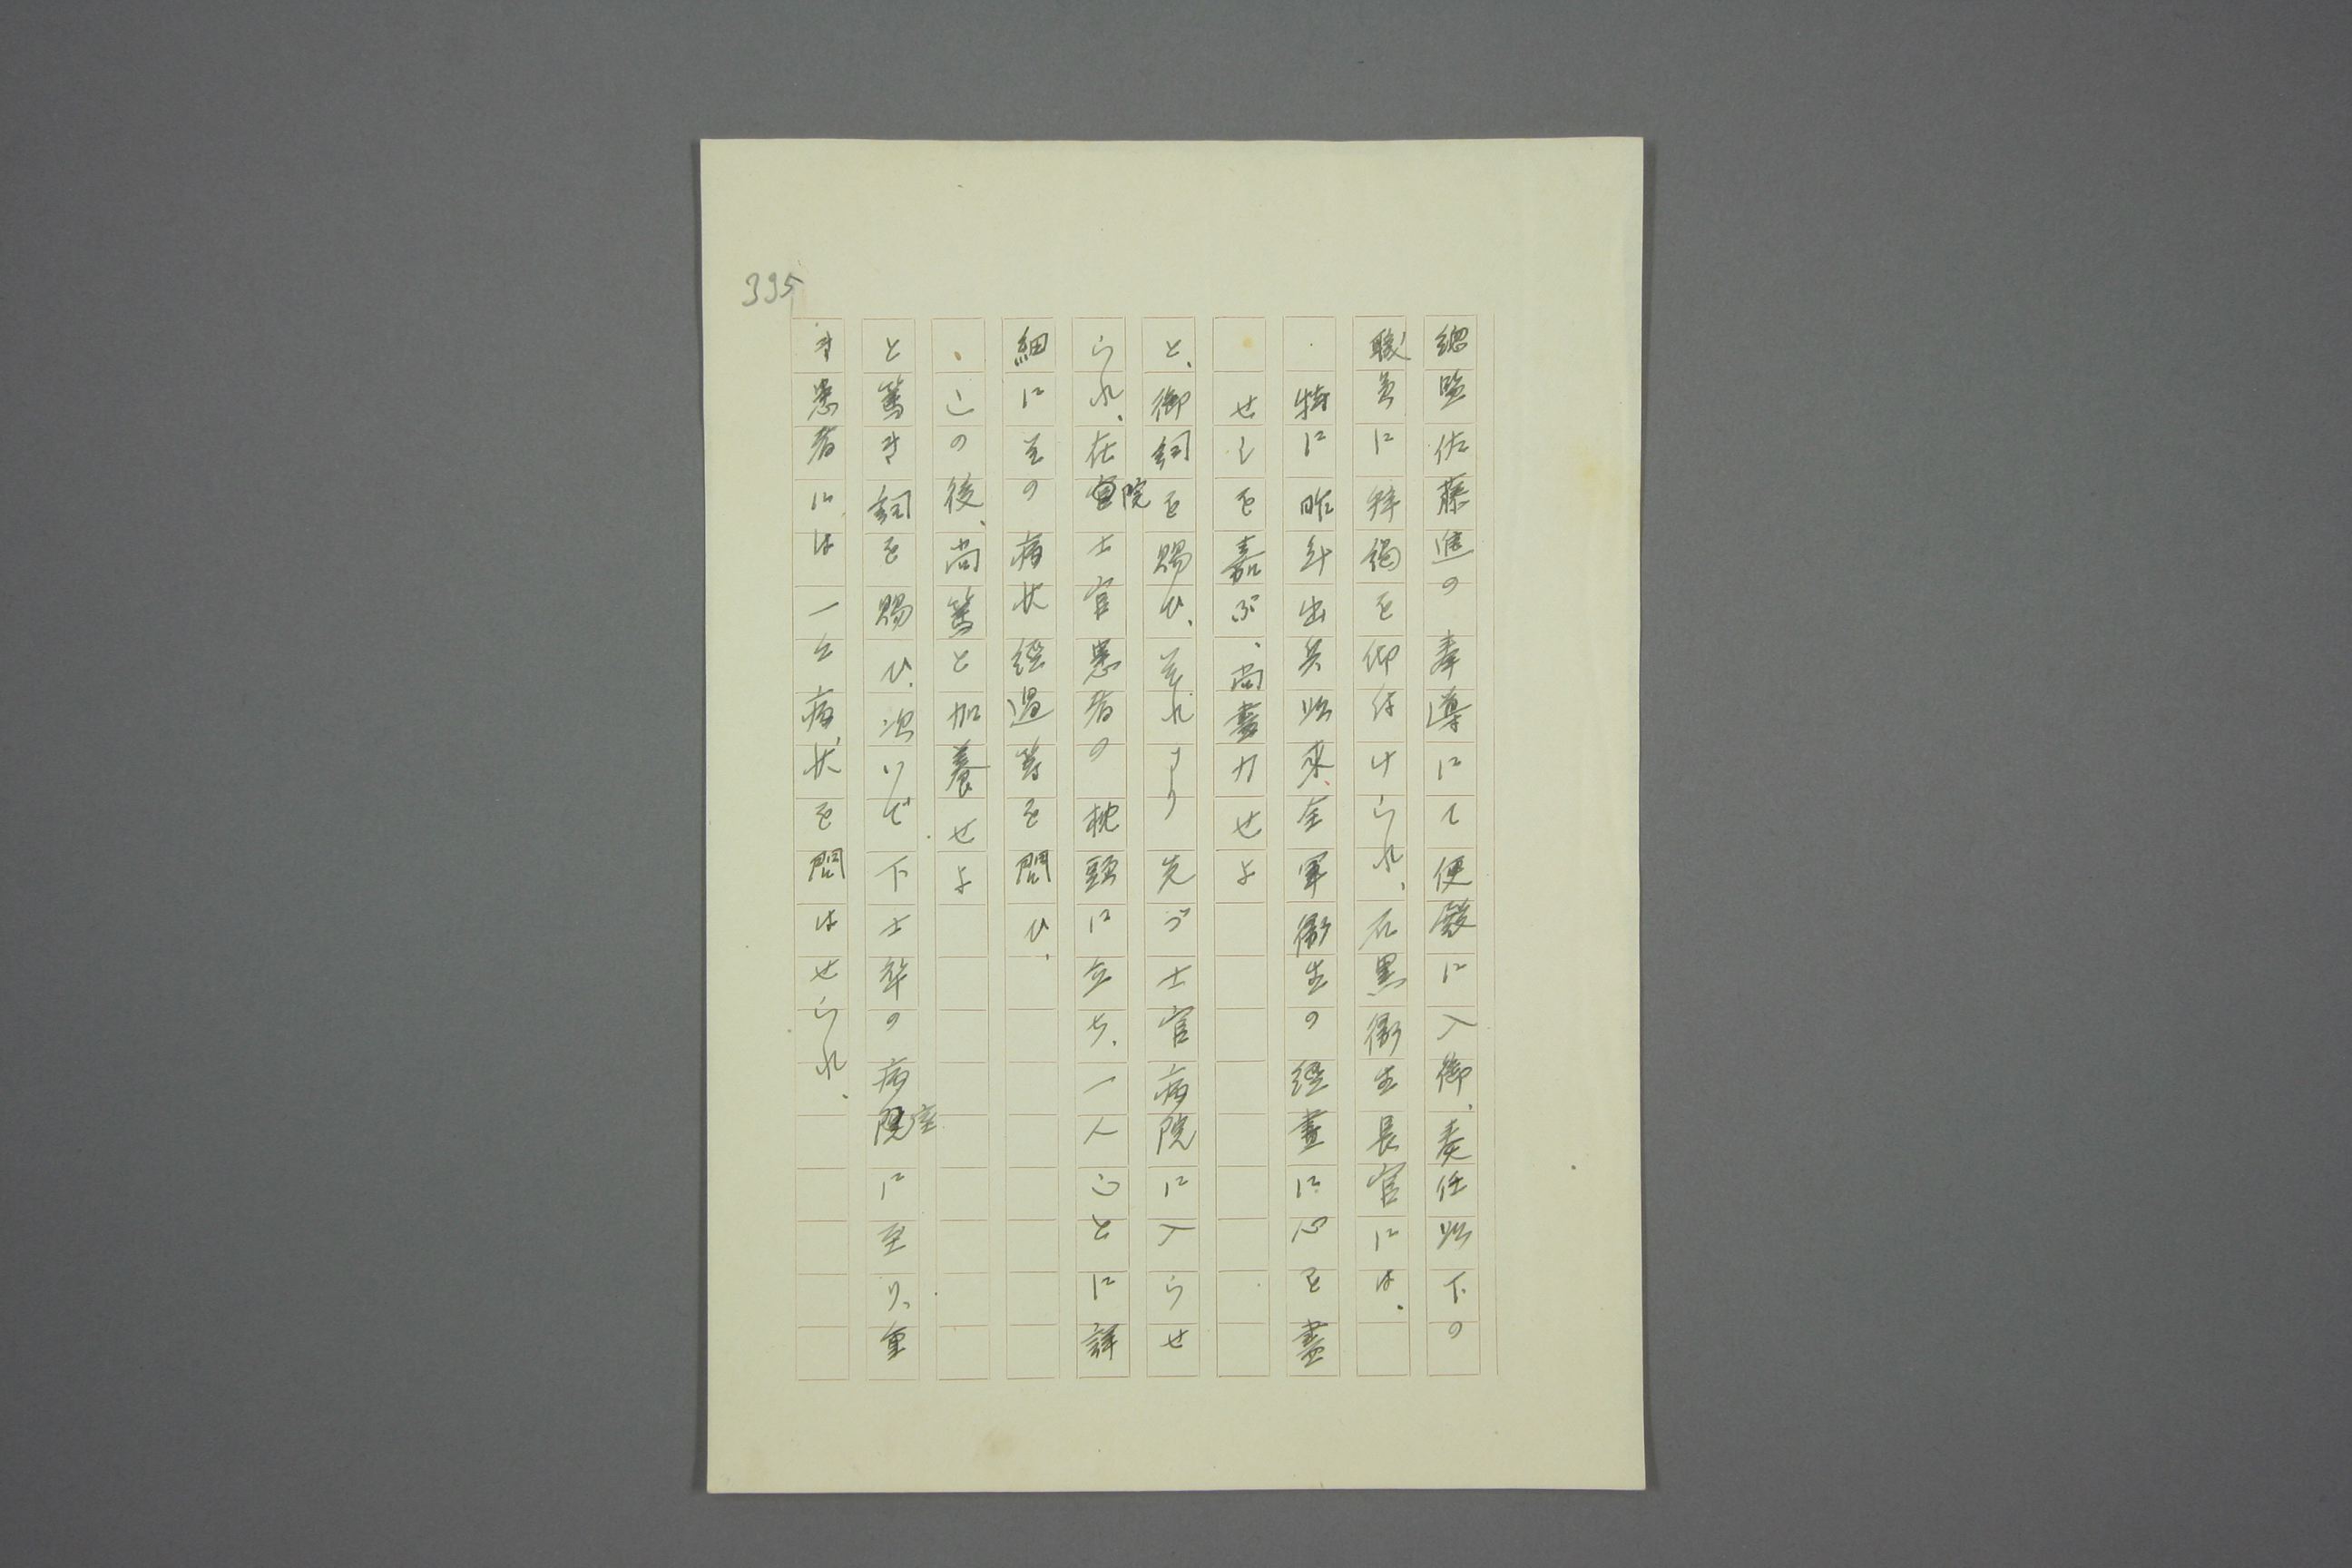 395
總監佐藤進の奉導にて便殿に入御、奏任以下の
職員に拜謁を仰付けられ、石黒衞生長官には、
特に昨年出兵以來、全軍衞生の經畫に心を盡
せしを嘉ぶ、尚盡力せよ
と、御詞を賜ひ、それより先づ士官病院に入らせ
られ、在院士官患者の枕頭に立ち、一人ごとに詳
細にその病状經過等を問ひ、
この後、尚篤と加養せよ
と篤き詞を賜ひ、次いで下士卒の病室に至り、重
き患者には一々病状を問はせられ、